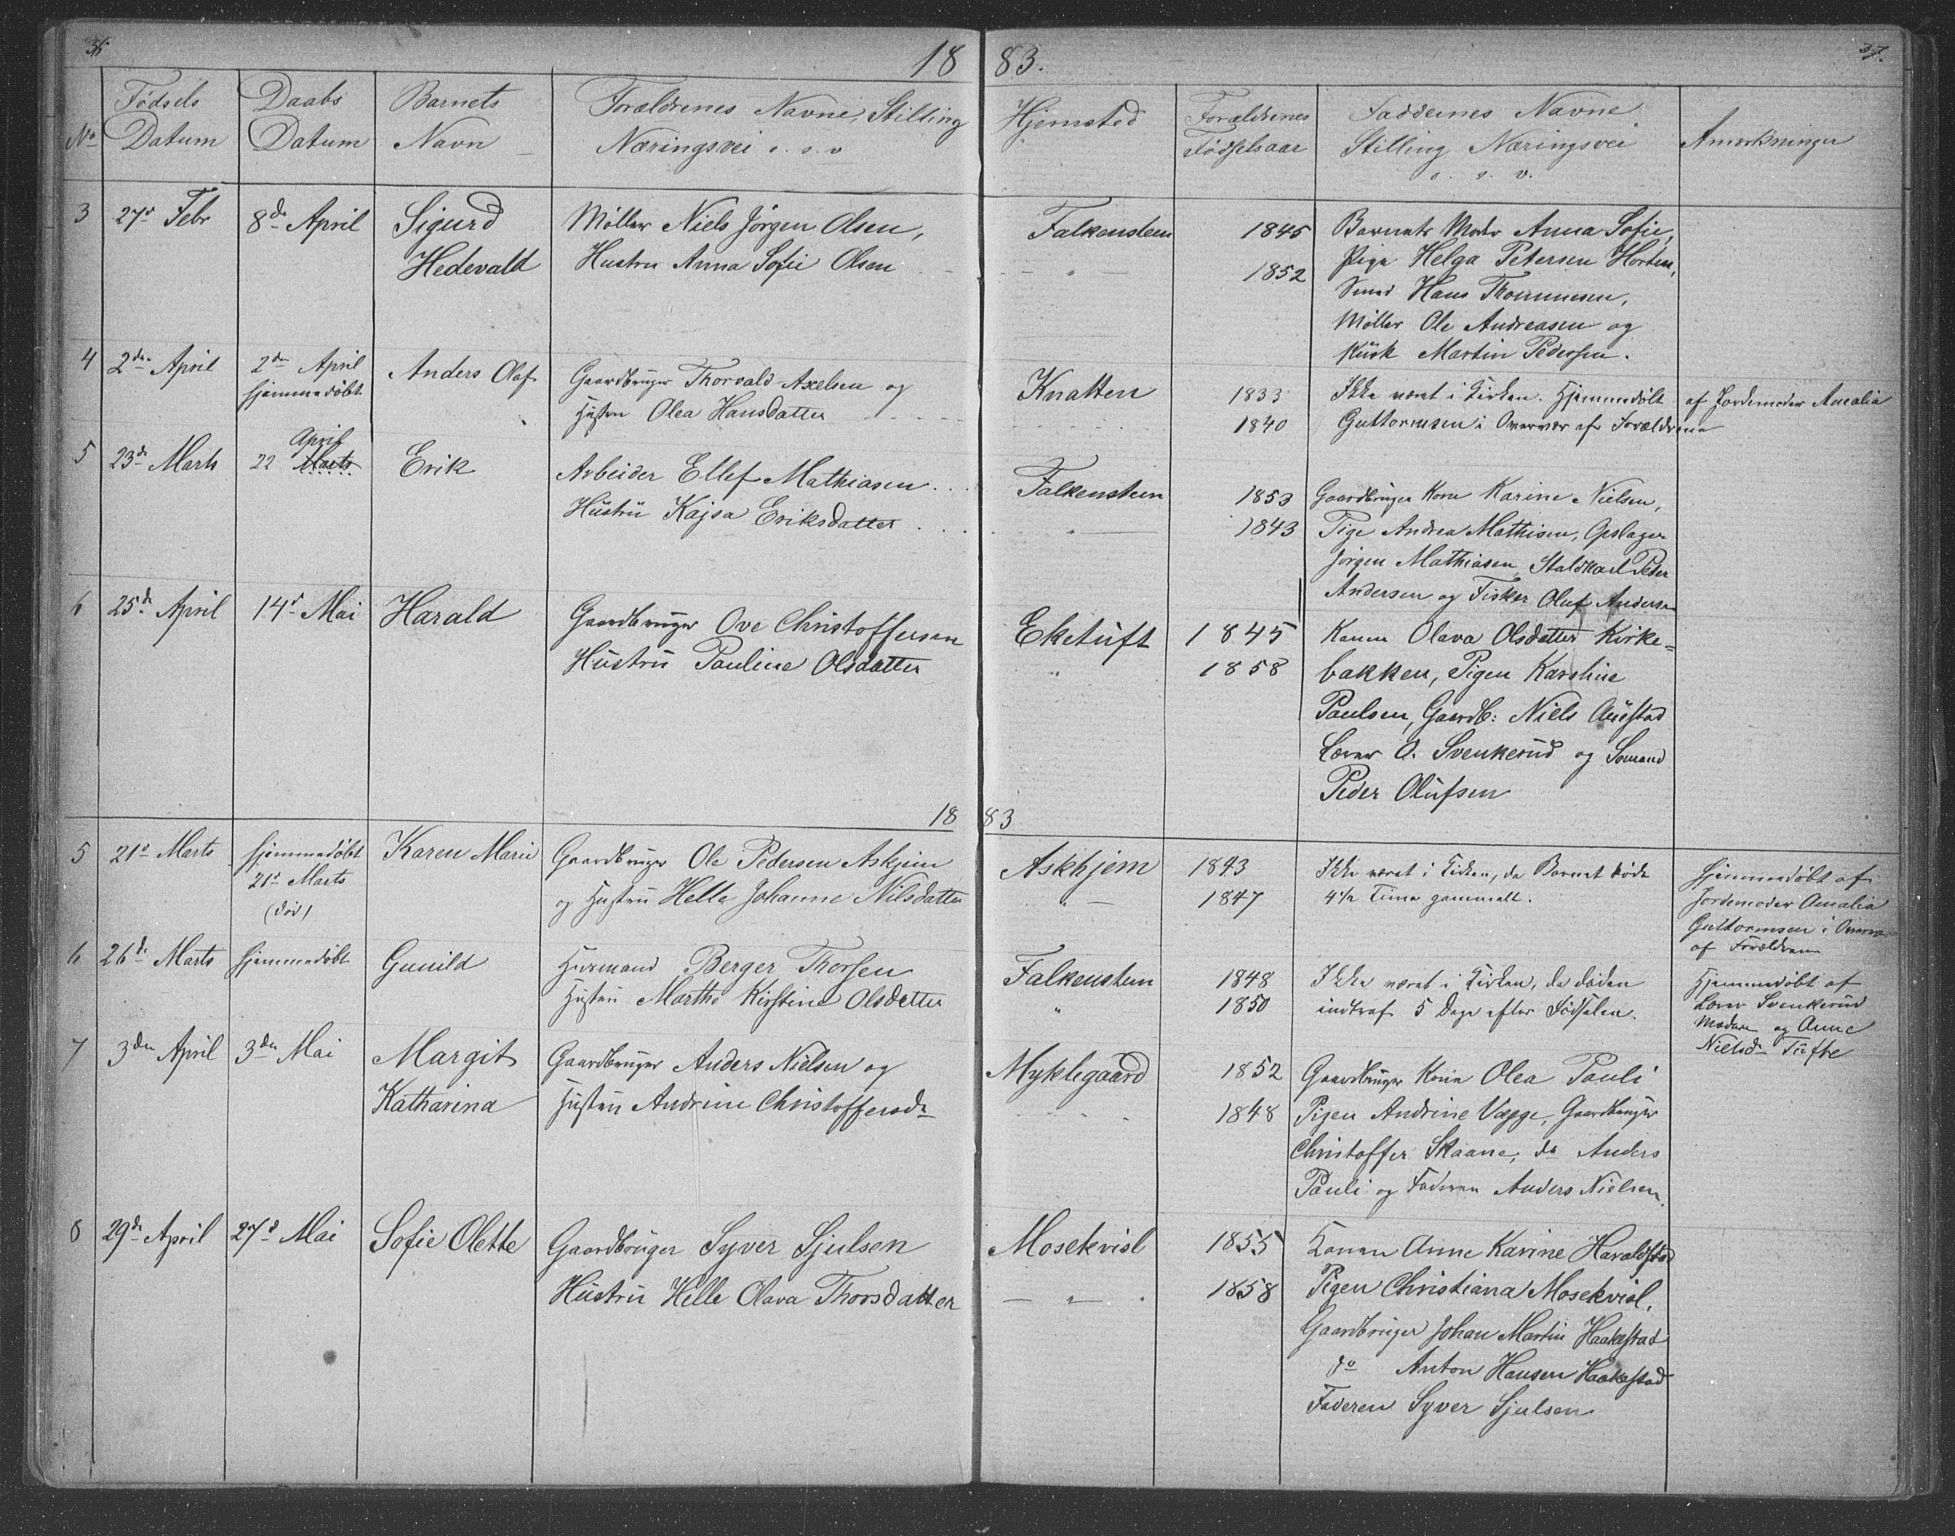 36
18 83.
37.
No
Fødsels Datum
Daabs Datum
Barnets Navn
Forældrenes Navne, Stilling
Næringsvei o. s. v
Hjemsted
Forældrenes Fødselsaar
Faddernes Navne
Stilling Næringsvei
o. s. v.
Anmærkninger
3 27de Febr 8de April Sigurd Hedevald
Møller Niels Jørgen Olsen,
Hustru Anna Sofie Olsen
Falkensteen 1845
— " — 1852
Barnets Moder Anna Sofie,
Pige Helga Petersen Horten,
Smed Hans Thommesen,
Møller Ole Andreasen og
Kusk Martin Pedersen.
4 2den April 2den April hjemmedøbt. Anders Olaf
Gaardbruger Thorvald Axelsen og
Hustru Olea Hansdatter
Knatten 1833
1840
Ikke været i Kirken. Hjemmedøbt af Jordemoder Amalia
Guttormsen i Overvær af Forældrene
5 23de Marts 22 April Marts Erik
Arbeider Ellef Mathiasen
Hustru Kajsa Eriksdatter
Falkensteen 1853
" 1843
Gaardbruger Kone Karine Nielsen,
Pige Andrea Mathisen, Opslager
Jørgen Mathiasen, Staldkarl Peder
Andersen og Fisker Oluf Andersen
6 25de April 14de Mai Harald
Gaardbruger Ove Christoffersen
Hustru Pauline Olsdatter
Eketuft 1845
" 1858
Konen Olava Olsdatter Kirke=
bakken, Pigen Karoline
Paulsen, Gaardb: Niels Auestad
Lærer O. Svenkerud og Sømand
Peder Olufsen
18 83
5 21de Marts hjemmedøbt 21de Marts (død) Karen Marie
Gaardbruger Ole Pedersen Askjem
og Hustru Helle Johanne Nilsdatter
Askhjem 1843
" — 1847
Ikke været i Kirken, da Barnet døde
4½ Time gammelt.
Hjemmedøbt af
Jordemoder Amalia
Guttormsen i Overvær
af Forældrene
6 26de Marts hjemmedøbt Gunild
Huusmand Berger Thorsen
Hustru Marthe Kirstine Olsdatter
Falkensteen 1848
" 1850
Ikke været i Kirken, da døden
indtraf 5 Dage efter Fødselen.
Hjemmedøbt af
Lærer Svenkerud
Moderen og Anne
Nielsdr Tufte
7 3den April 3den Mai Margit Katharina
Gaardbruger Anders Nielsen og
Hustru Andrine Christoffersdr
Myklegaard 1852
1848
Gaardbruger Kone Olea Pauli
Pigen Andrine Vegge, Gaardbruger
Christoffer Skaane, do Anders
Pauli og Faderen Anders Nielsen.
8 29de April 27de Mai Sofie Olette
Gaardbruger Syver Sjulsen
Hustru Helle Olava Thorsdatter
Mosekvisl 1855
— " — 1858
Konen Anne Karine Haraldstad
Pigen Christiana Mosekvisl,
Gaardbruger Johan Martin Haakestad
do Anton Hansen Haakestad
Faderen Syver Sjulsen